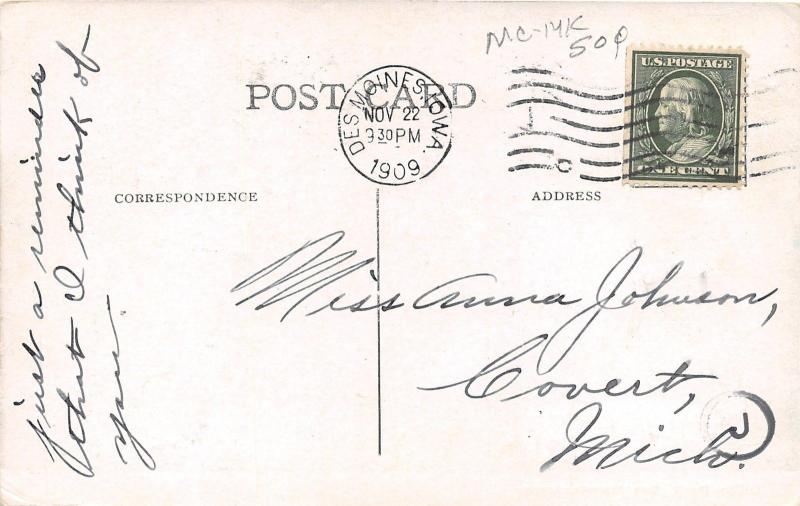 MC-14K
50¢
U.S. POSTAGE
ONE CENT
POST CARD
DES MOINES, IOWA
NOV 22
930PM
1909
C
CORRESPONDENCE
ADDRESS
just a reminder
that I think of
you -
Miss Anna Johnson,
Covert,
Mich.
2